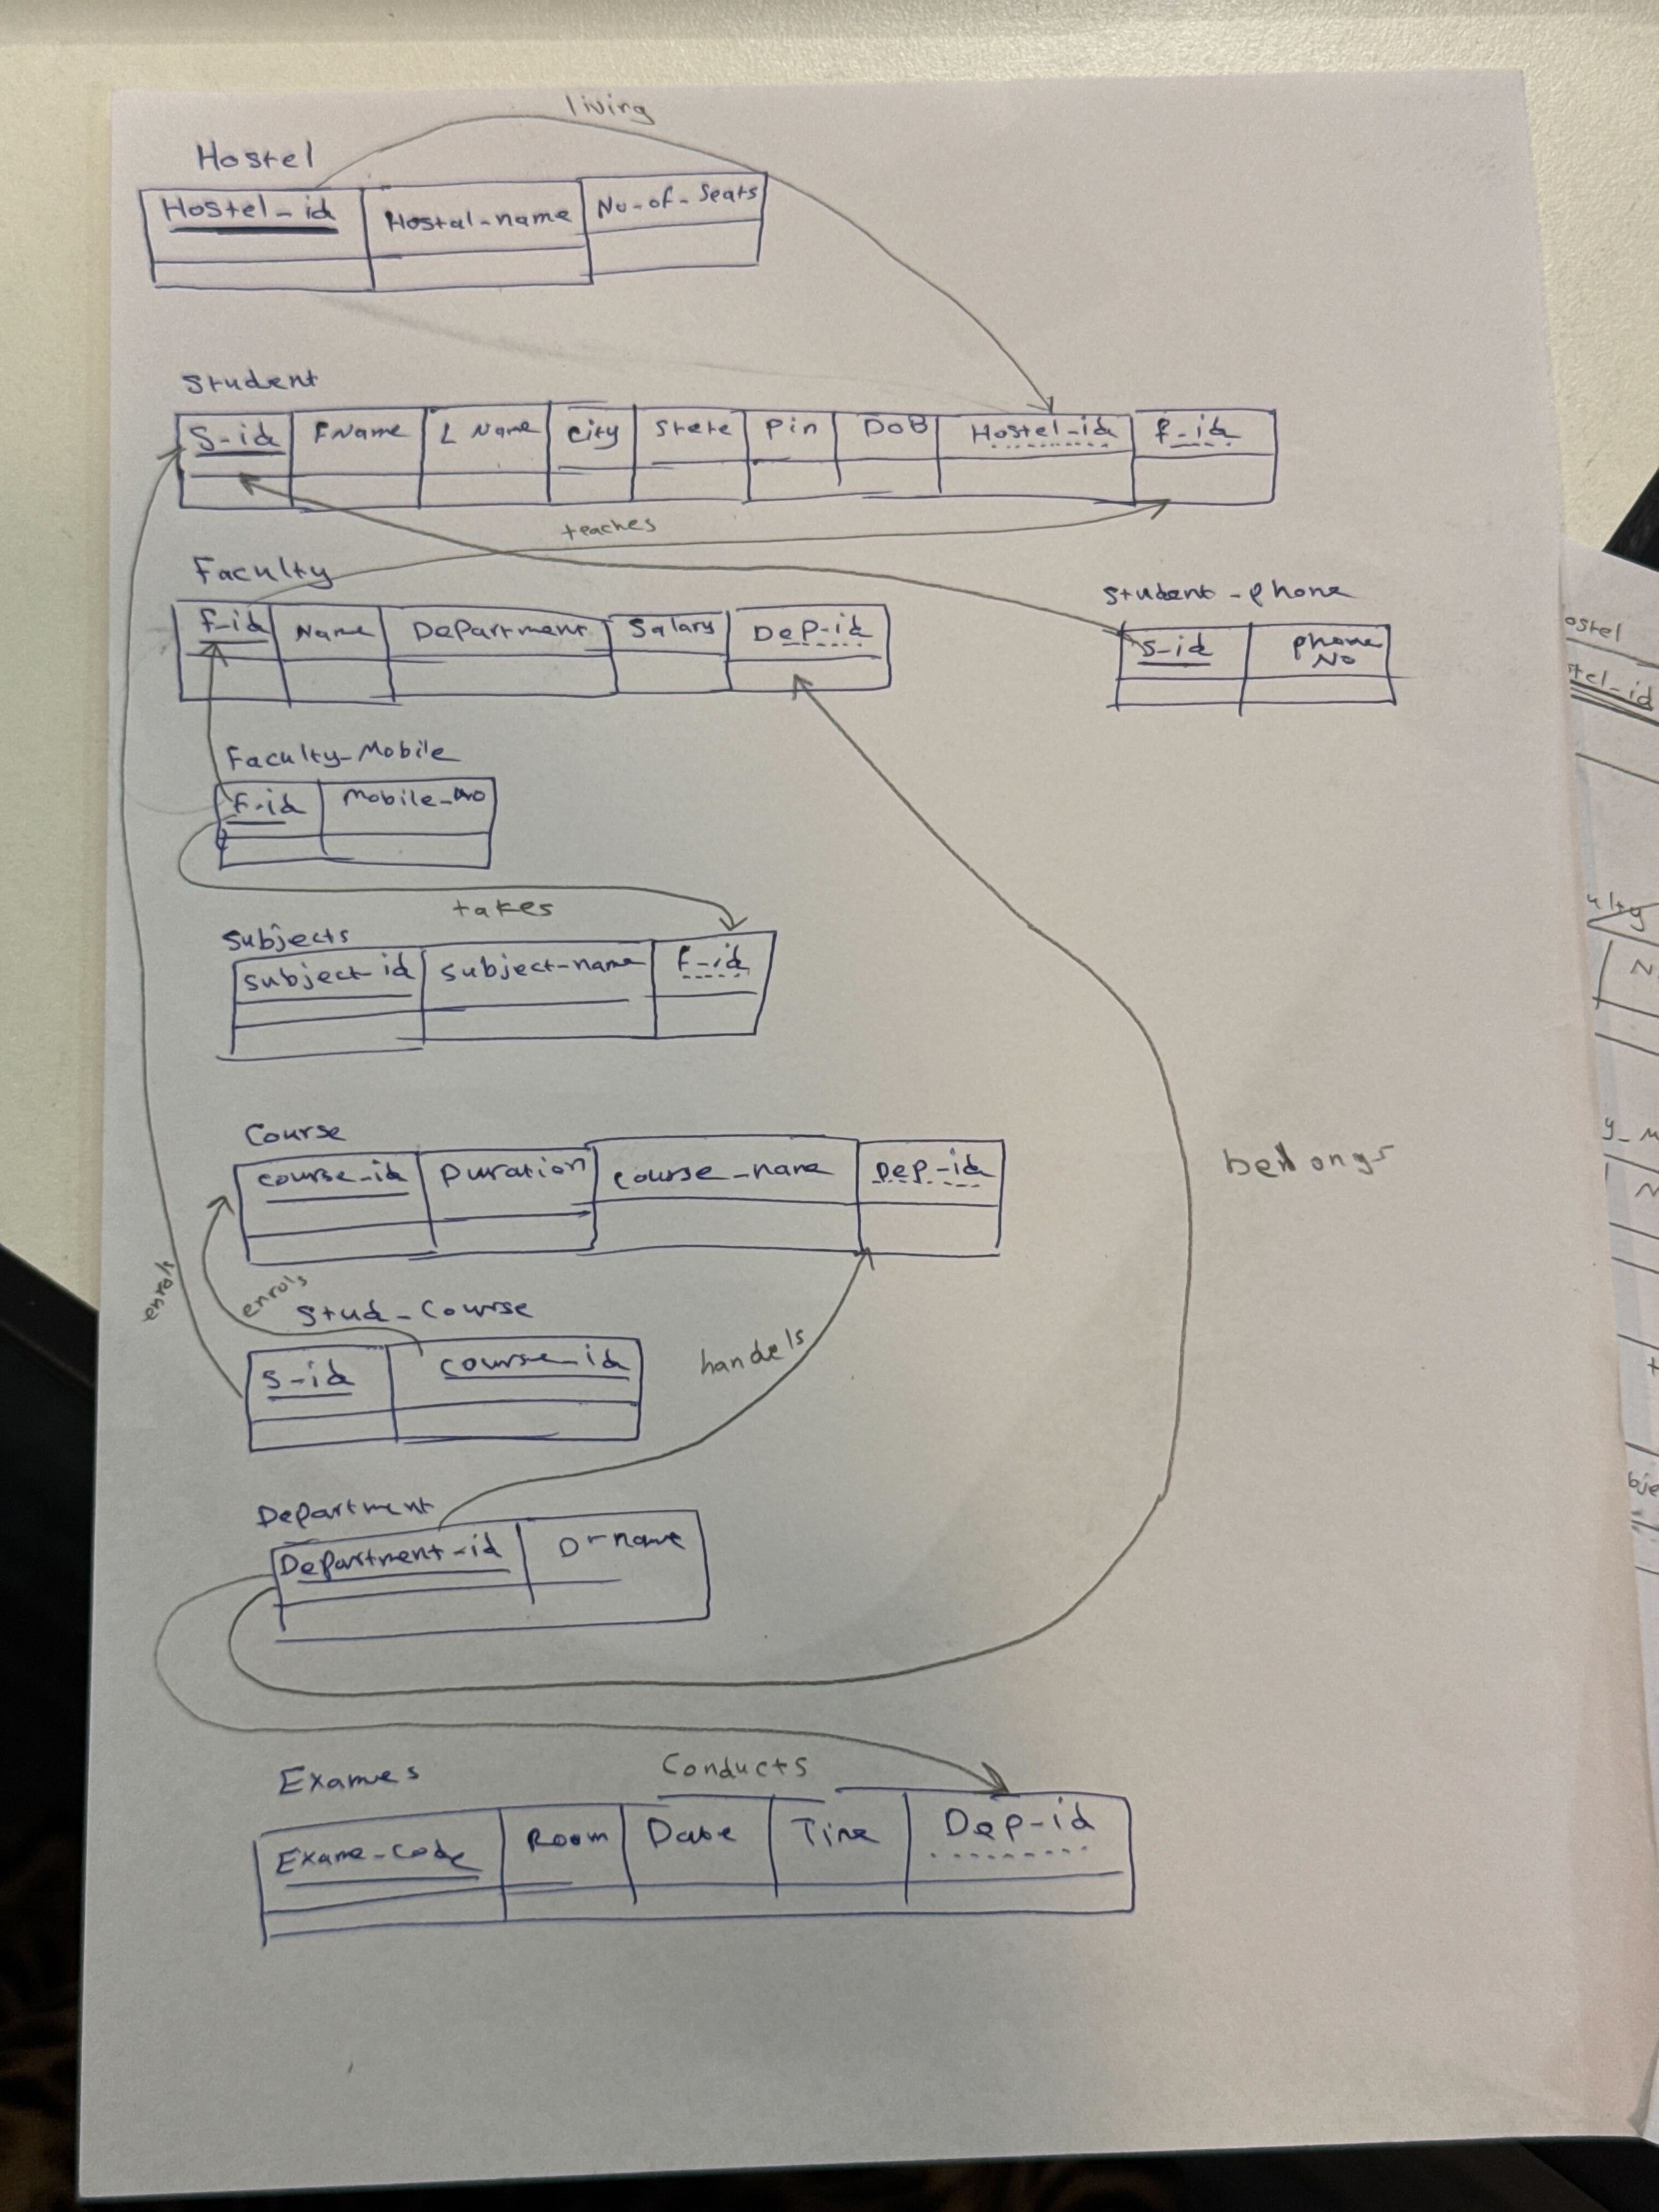 living
Hostel
Hostel-id Hostal-name No-of-Seats
Student
S-id FName L Name City State Pin DoB Hostel-id f-id
teaches
Faculty
f-id Name Department Salary Dep-id
Student-phone
S-id phone No
Faculty-Mobile
F-id Mobile-No
takes
Subjects
subject-id subject-name f-id
Course
course-id Duration course-name Dep-id
belongs
enrols
enrols
Stud-Course
S-id course-id
handels
Department
Department-id D-name
Conducts
Exames
Exame-Code Room Date Time Dep-id
ostel
tel-id
ulty
N
y-M
N